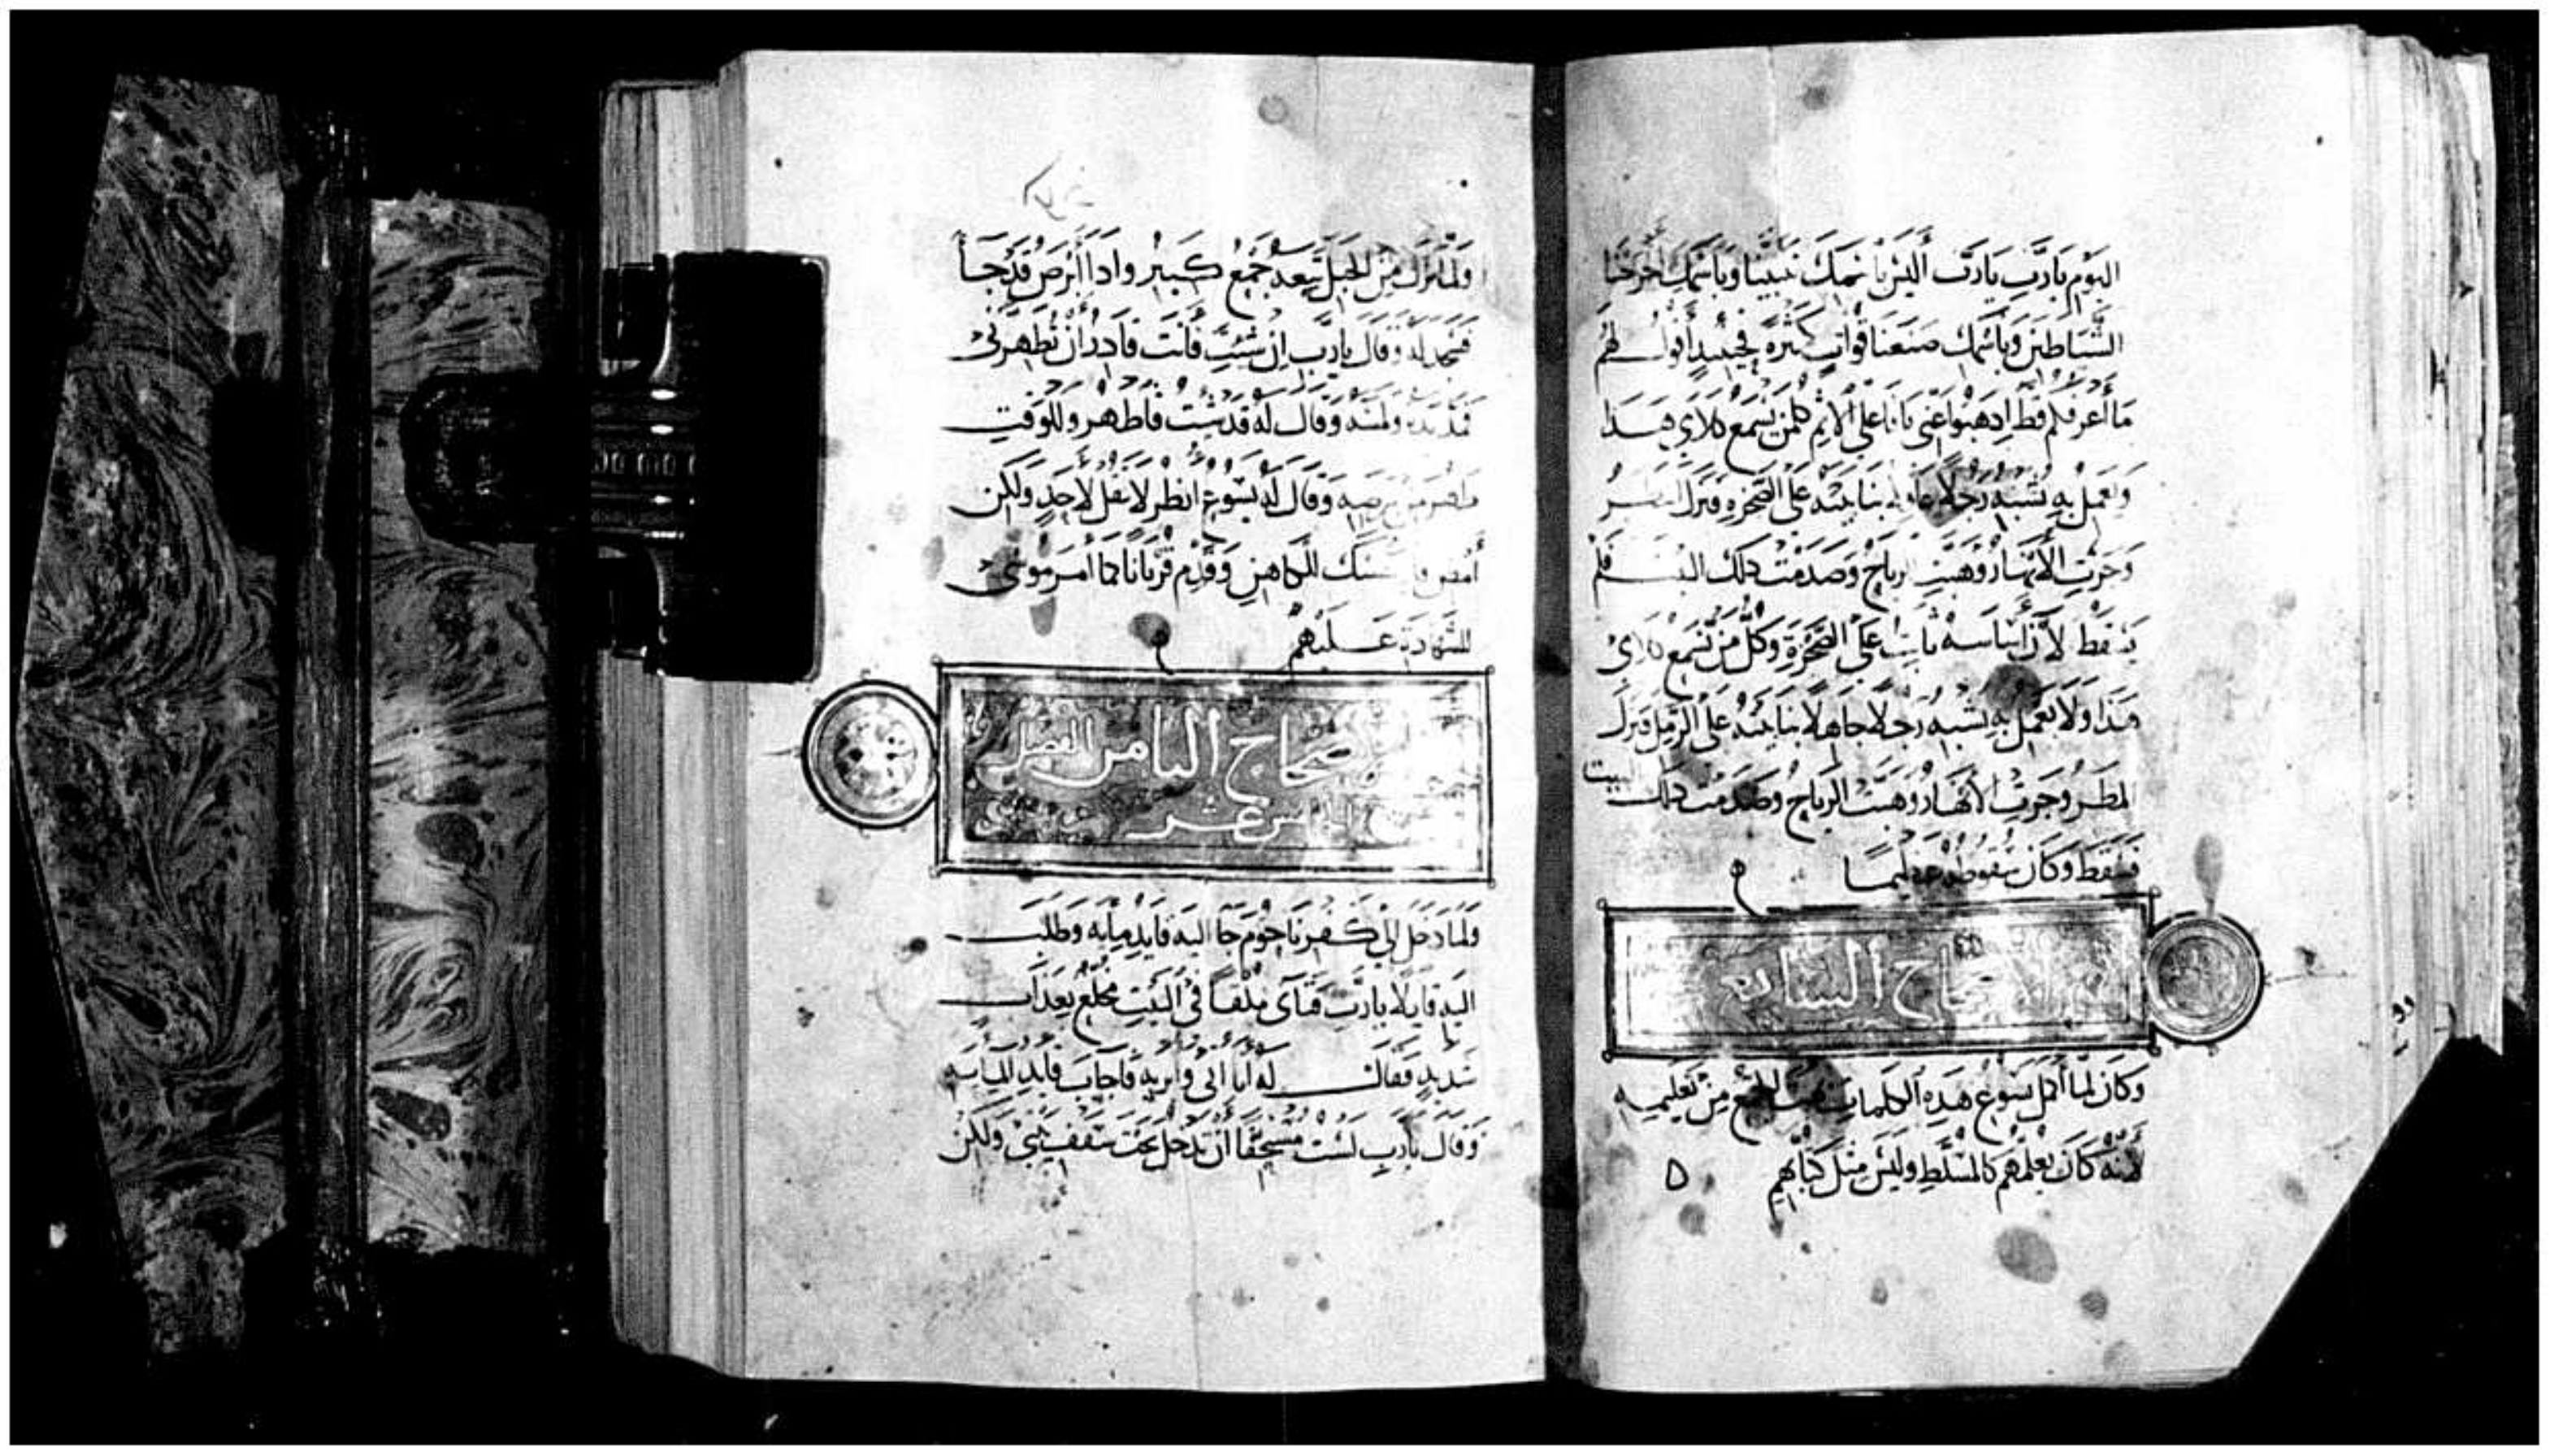 اليَوْم يَارَبِّ يَارَبّ أَليْسَ باسْمِكَ تنبيَّنا وَباسْمِكَ اخرجْنا
الشَّيَاطينَ وَباسْمِكَ صَنَعنَا قوَّاتٍ كثيرَةً فحِينَيذٍ أقولُ لهُم
مَا أعرفكم قط اِدهَبُوا عَنِّى يَا فاعلى الاثم فكلمن يَسْمَع كلامى هَذَا
وَيَعمَلُ بهِ يُشبهُ رَجُلًا عَاقِلا بنا بيتَه عَلى الصَّخرَةِ فنزلَ المطرُ
وَجَرَتِ الأنهَارُ وَهَبَّتِ الرياحُ وَصَدَمَتْ دلكَ البَيْتَ فلم
يَسْقط لأنَّ أسَاسَهُ ثابتٌ عَلى الصَّخرَةِ وَكلُّ مَنْ يَسْمَع كلامى
هَذا وَلا يَعْمَلُ بهِ يُشبهُ رَجلًا جَاهِلًا بنا بَيتَهُ عَلى الرَّمْل فنزلَ
المطَر وَجَرَتِ الأنهَارُ وَهَبَّتِ الرياحُ وَصَدَمَت دلكَ البيت
فسَقط وَكانَ سُقوطهُ عَظيمًا
الاصحاح السابع
وَكانَ لمَّا أكمَلَ يَسُوع هَذِه الكلماتِ بُهِتَ الجَمْع مِنْ تَعليمِه
لأنَّهُ كانَ يُعلمُهم كالمسَلّط وَليْسَ مِثلَ كتَّابهِم
وَلمَّا نَزلَ مِنَ الجَبَل تَبعَهُ جَمْعٌ كَبيرٌ وادَا أبْرَصُ قَدْ جَا
فسَجَد لهُ وَقالَ يارَبّ إنْ شِئتَ فأنتَ قادِرٌ أنْ تُطهرَنى
فمَدَّ يَدَه وَلمسَه وَقالَ لهُ قَدْ شِئتُ فاطهر وَللوَقتِ
طهرَ مِن بَرصِه وَقالَ لهُ يَسُوع انظر لا تقل لأحَدٍ وَلكِن
أمْضِ فار نفسَك للكاهِنِ وَقدِّم قرْبانًا كما أمَرَ مُوسَى
للشهَادَة عَليْهم
الاصحاح الثامن الفصل
الخامس عشر
وَلمَّا دَخل إلى كفرنَاحُومَ جَا اليَه قايدُ مِايَه وَطلبَ
اليَه قايلا يارَبّ فتَاىَ مُلقًا فى البَيْتِ مخلع بعَذابٍ
شدِيدٍ فقال لهُ أنا اتى وَأبريه فأجابَ قايد المايه
وَقال يارَبّ لسْتُ مُسْتحقًّا أنْ تَدْخلَ تحتَ سَقفِ بَيتى وَلكِنْ